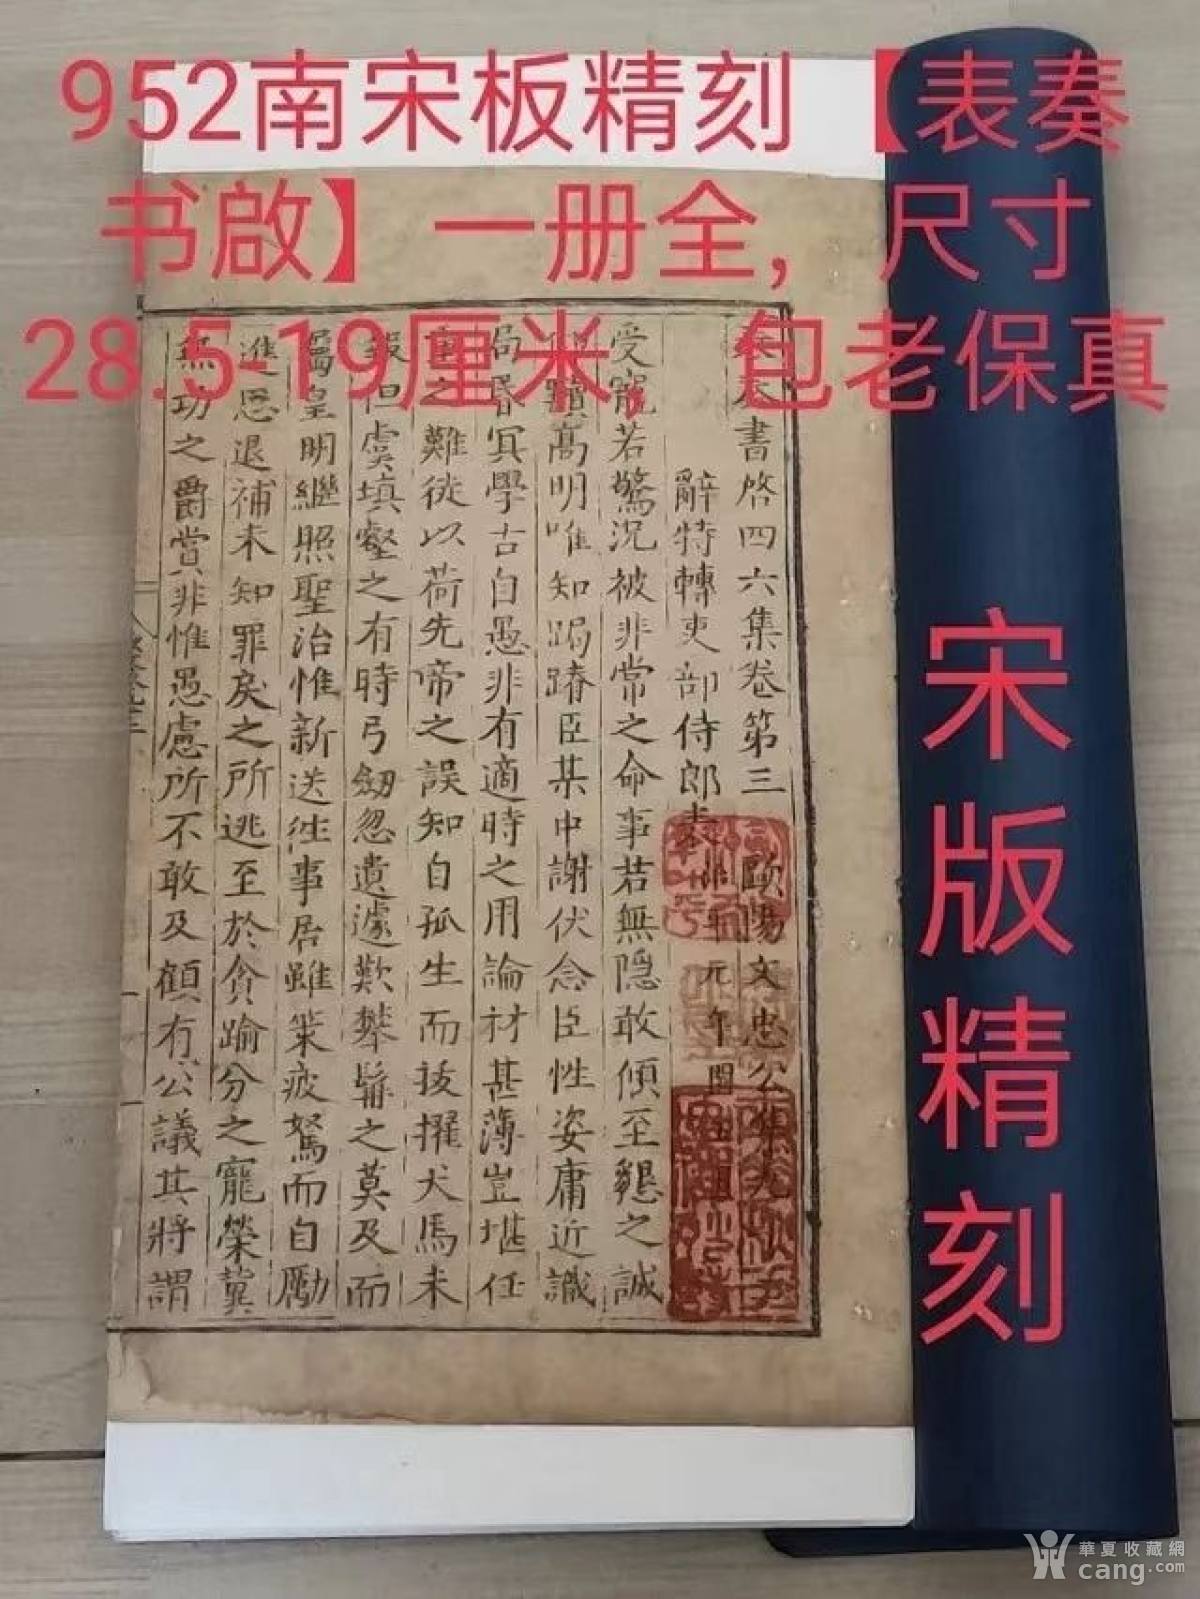 952南宋板精刻【表奏
书啟】一册全，尺寸
28.5-19厘米，包老保真
宋版精刻
表奏書啓四六集卷第三 歐陽文忠公集九十
辭特轉吏部侍郎表 元年
受寵若驚況被非常之命事若無隱敢傾至懇之誠
高明唯知跼蹐臣某中謝伏念臣性姿庸近識
局昏冥學古自愚非有適時之用論材甚薄豈堪任
重之難徒以荷先帝之誤知自孤生而拔擢犬馬未
報但虞填壑之有時弓劒忽遺遽歎攀髯之莫及而
屬皇明繼照聖治惟新送往事居雖策疲駑而自勵
進思退補未知罪戾之所逃至於貪踰分之寵榮冀
無功之爵賞非惟愚慮所不敢及顧有公議其將謂
華夏收藏網
cang.com